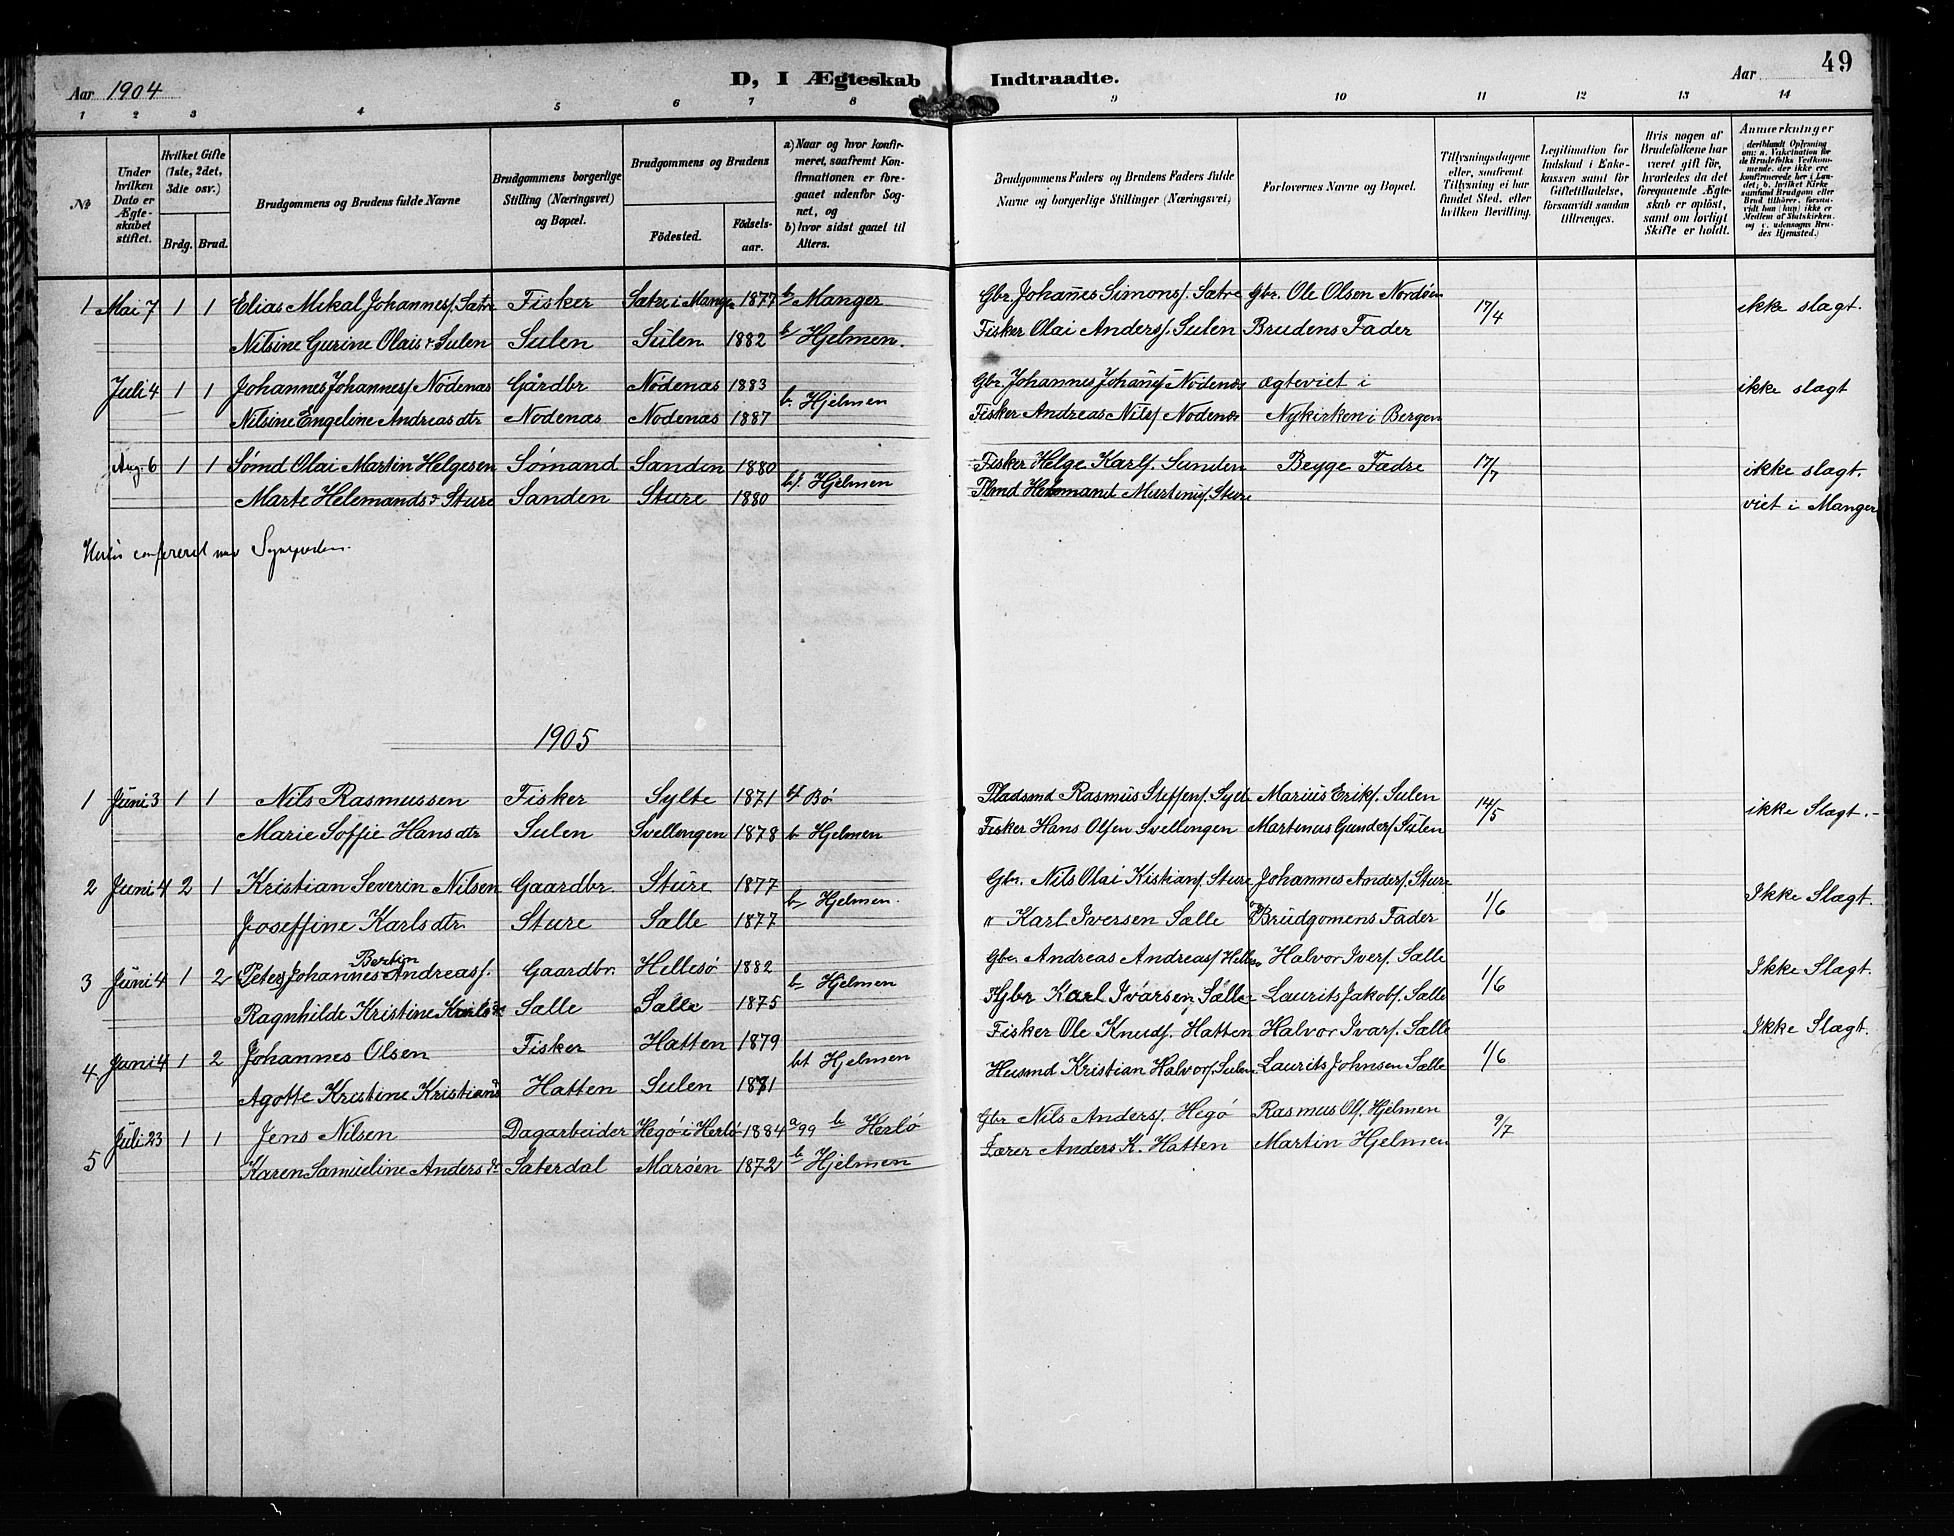 49
D, I Ægteskab Indtraadte.
Aar 1904
Aar
1 2 3 4 5 6 7 8 9 10 11 12 13 14
№
Under hvilken Dato er Ægteskabet stiftet.
Hvilket Gifte (1ste, 2det, 3die osv.)
Brdg. Brud.
Brudgommens og Brudens fulde Navne
Brudgommens borgerlige Stilling (Næringsvei) og Bopæl.
Brudgommens og Brudens
Födested.
Födselsaar.
a) Naar og hvor konfirmeret, saafremt Konfirmationen er foregaaet udenfor Sognet, og
b) hvor sidst gaaet til Alters.
Brudgommens Faders og Brudens Faders fulde Navne og borgerlige Stillinger (Næringsvei)
Forlovernes Navne og Bopæl.
Tillysningsdagene eller, saafremt Tillysning ei har fundet Sted, efter hvilken Bevilling.
Legitimation for Indskud i Enkekassen samt for Giftetilladelse, forsaavidt saadan tiltrænges.
Hvis nogen af Brudefolkene har været gift för, hvorledes da det foregaaende Ægteskab er oplöst, samt om lovligt Skifte er holdt.
Anmerkninger
1 Mai 7 1 1 Elias Mikal Johannes/. Sætre Fisker Sætre i Manger 1877 b Manger Gbr. Johannes Simons/. Sætre Gbr. Ole Olsen Nordöen 17/4 ikke slagt.
Nilsine Gurine Olais d. Sulen Sulen Sulen 1882 b Hjelmen. Fisker Olai Anders/. Sulen Brudens Fader
Juli 4 1 1 Johannes Johannes/ Nödenæs Gårdbr Nödenæs 1883 b. Hjelmen Gbr. Johannes Johans/ Nödenæs ægteviet i ikke slagt
Nilsine Engeline Andreas dtr Nodenæs Nodenæs 1887 Fisker Andreas Nils/ Nodenæs Nykirken i Bergen
Aug. 6 1 1 Sømd Olai Martin Helgesen Sömand Sanden 1880 b/. Hjelmen Fisker Helge Karl/. Sanden Begge Fædre 17/7 ikke slagt.
Marte Helemands d Sture Sanden Sture 1880 Helemand Martinus/. Sture viet i Manger
1905
1 Juni 3 1 1 Nils Rasmussen Fisker Sylte 1871 Bö Pladsmd Rasmus Steffen/. Sylt Marius Erik/. Sulen 14/5 ikke Slagt.
Marie Soffie Hans dtr Sulen Svellingen 1878 b Hjelmen Fisker Hans Olsen Svellingen Martinus Gunder/. Sulen
2 Juni 4 2 1 Kristian Severin Nilsen Gaardbr. Sture 1877 b Hjelmen. Gbr. Nils Olai Kistian/. Sture Johannes Anders/. Sture 1/6 Ikke Slagt.
Joseffine Karls dtr. Sture Sælle 1877 " Karl Iversen Sælle Brudgomens Fader
3 Juni 4 1 2 Peter Johannes Bertin Andreas/. Gaardbr. Hellesö 1882 b Hjelmen Gbr. Andreas Andreas/ Halvor Iver/. Sælle 1/6 Ikke Slagt.
Ragnhilde Kristine Karls d Sælle Sælle 1875 Karl Ivarsen Sælle Laurits Jakob/. Sælle
4. Juni 4 1 2 Johannes Olsen Fisker Hatten 1879 Hjelmen Fisker Ole Knud/. Hatten Halvor Ivar/. Sælle 1/6 Ikke Slagt.
Agotte Kristine Kristians Hatten Sulen Husmd Kristian Halvor/. Sulen Laurits Johnsen Sælle
5 Juli 23 1 1 Jens Nilsen Dagarbeider Hegö i Herlö 1884 a 99 b Herlö Gbr Nils Anders/. Hegö Rasmus Ol/. Hjelmen 9/7
Karen Samueline Anders d Saterdal Maröen 1872 b Hjelmen Lærer Anders K. Hatten Martin Hjelmen